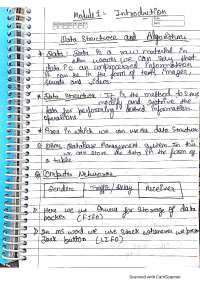 Module 1 - Introduction
Data Structures and Algorithms
* Data : Data is a raw material in
other words we can say that
data is an unprocessed information
It can be in the form of text, images,
sounds and video.
* Data Structure : It is the method to store
modify and retrive the
data for performing desired information
operations.
* Area in which we can use the Data Structure
① DBMS : DataBase Management System In this
we can store the data in the form of
a table.
② Computer Networks
Sender Traffic/Delay Receiver
Here we use Queue for storage of data
packet (FIFO)
In ms word we use stack whenever we press
back button (LIFO)
Scanned with CamScanner